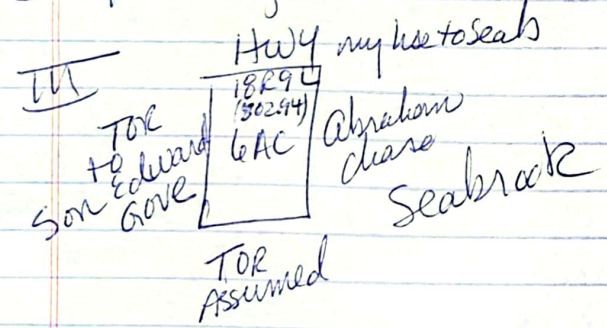 HWY my hse to Seab
III
18R9L
(302.94)
6AC
TOR
to
Edward
Son Gove
Abraham
chase
Seabrook
TOR
Assumed